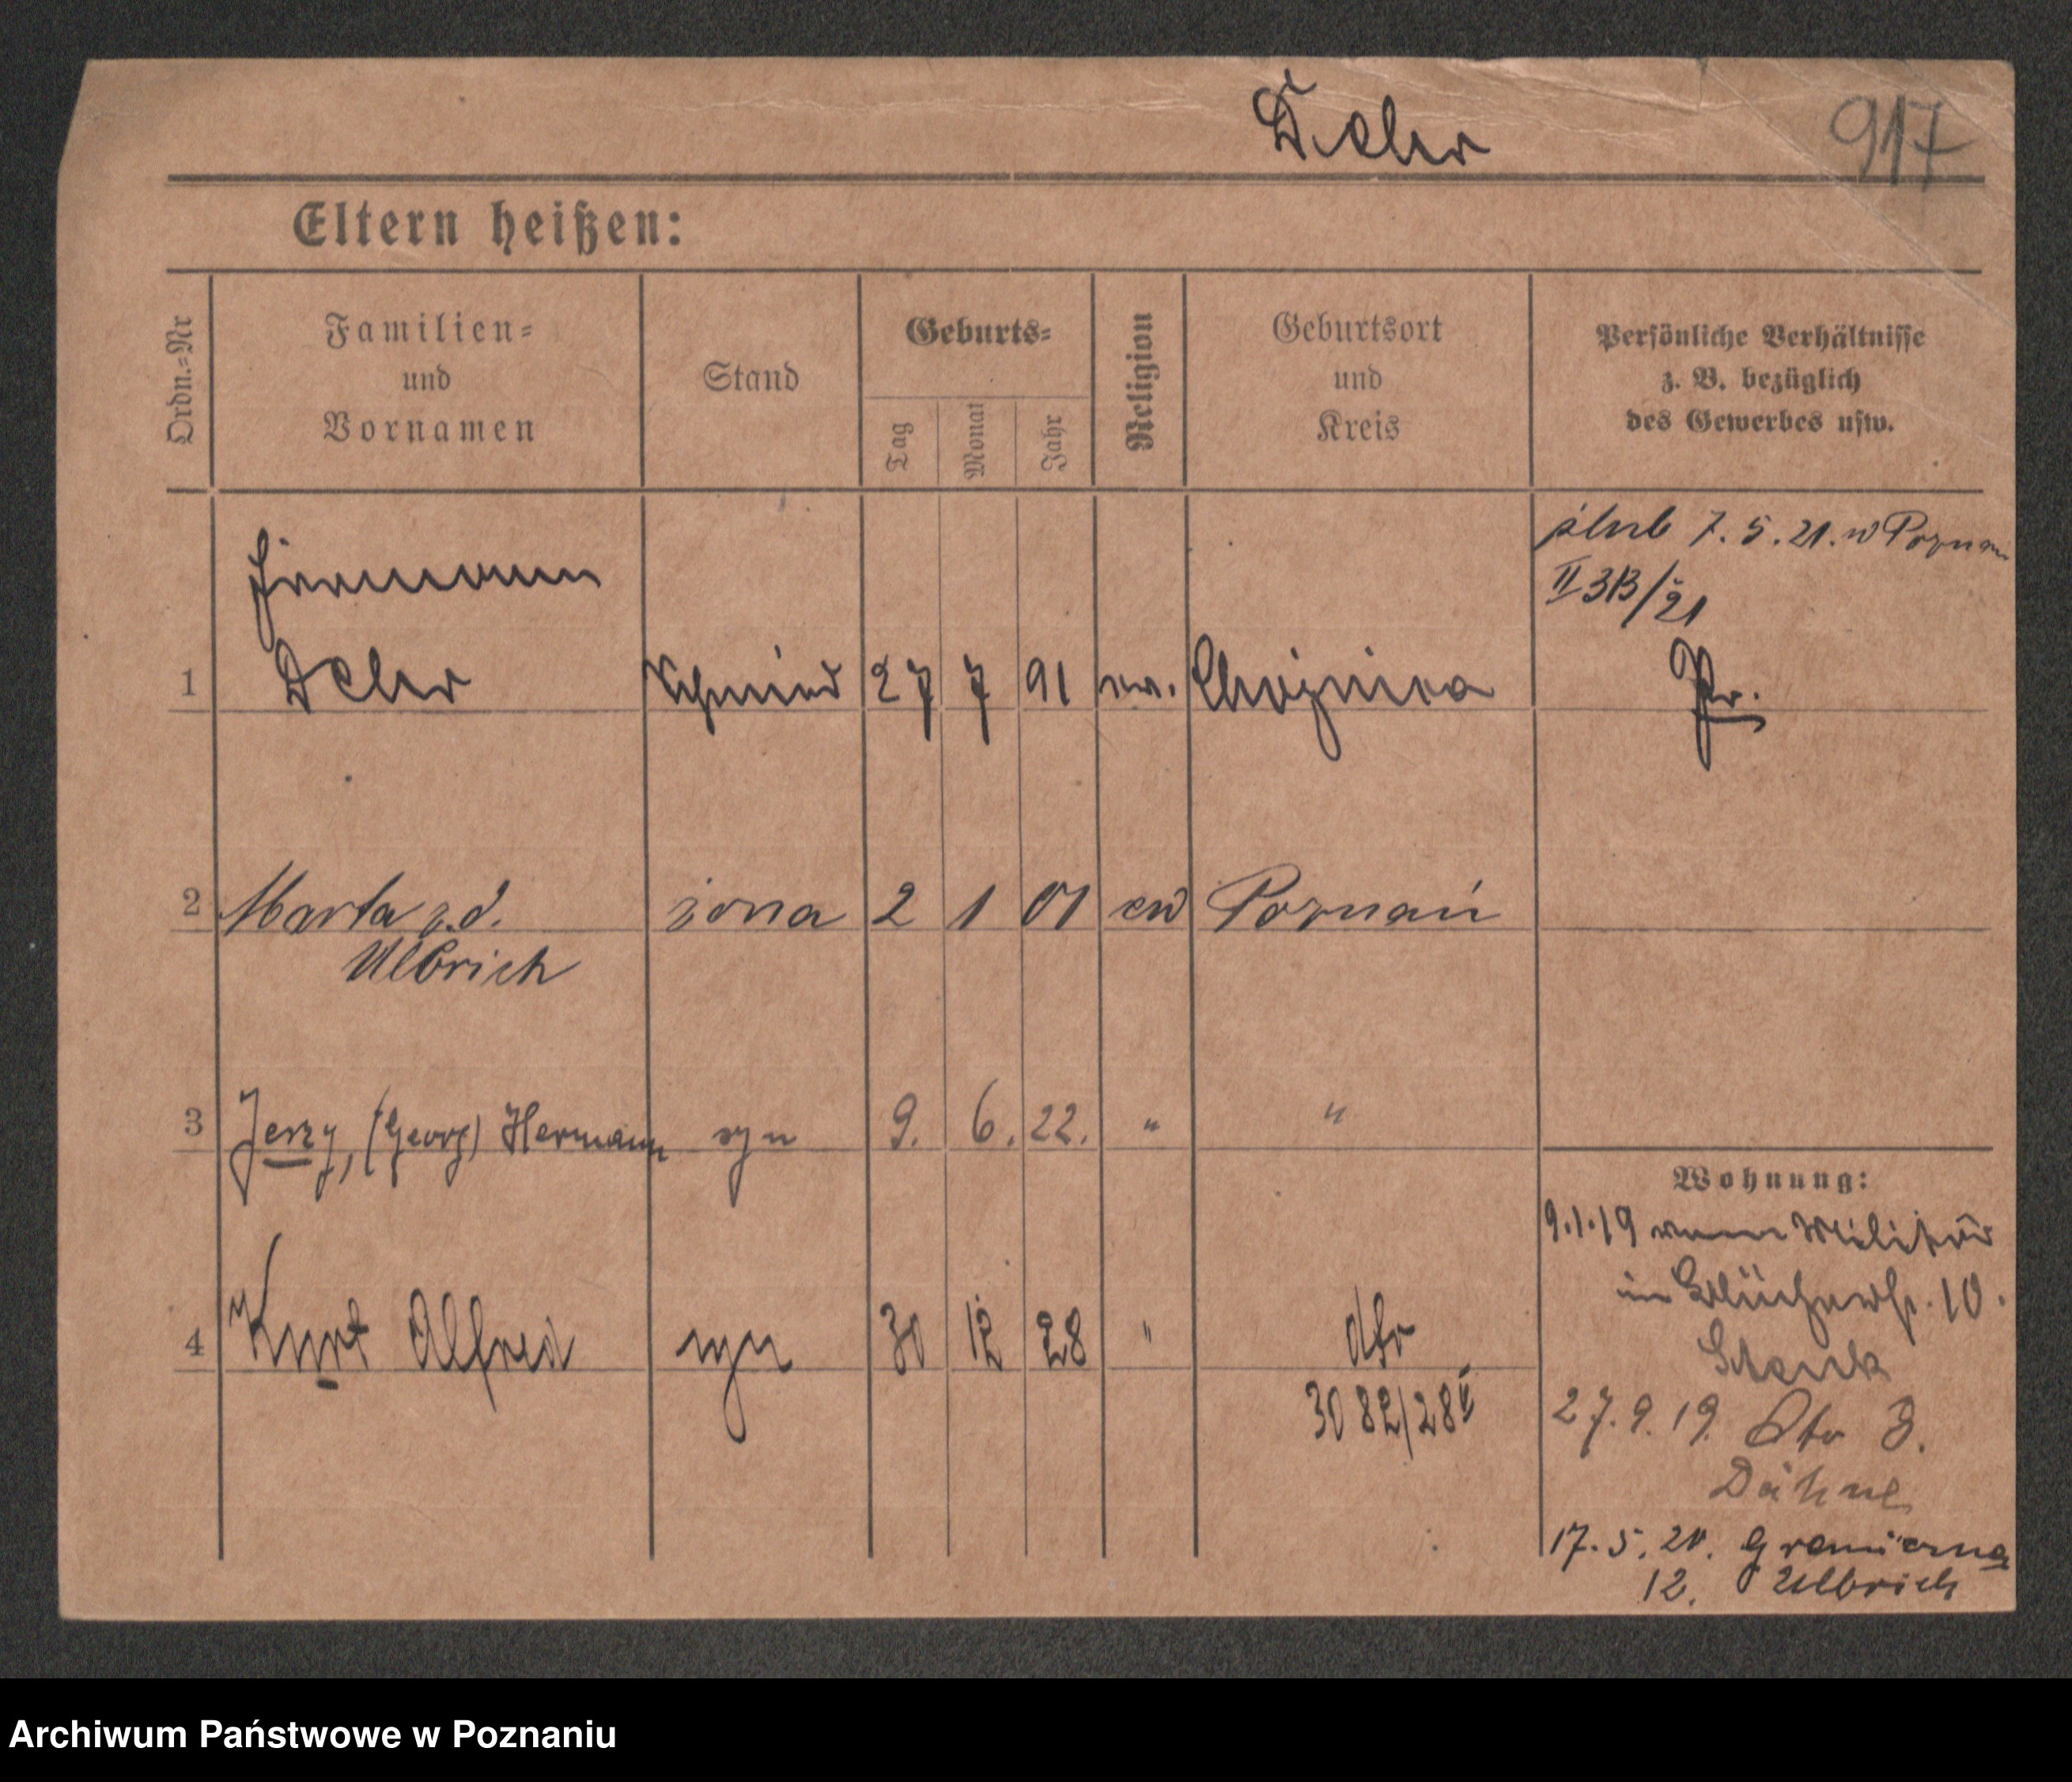 917
Eltern heißen:
Ordn.=Nr
Familien=
und
Vornamen
Stand
Geburts=
Tag
Monat
Jahr
Religion
Geburtsort
und
Kreis
Persönliche Verhältnisse
z. B. bezüglich
des Gewerbes usw.
ślub 7. 5. 21. w Poznan
Hermann
1 Schmied 27 7 91 ev. Choiznica Pr.
2 Marta z.d. żona 2 1 01 ew Poznań
Ulbrich
3 Jerzy, (Georg) Hermann syn 9. 6. 22. " "
Wohnung:
9.1.19 vom Militär
in Blücherstr. 10.
Schenk
4 Kurt Alfred syn 30 12 28 " dto
3082/28 II
27. 9. 19. 3.
Dähne
17. 5. 21. Graniczna
12. Ulbrich
Archiwum Państwowe w Poznaniu